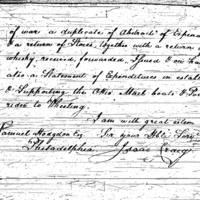 of war a duplicate of Abstract of Expen
& a return of Stores, together with a return
whisky, received, forwarded, Issued & on ha
also a Statement of Expenditures in estab
& Supporting the Mail boats & P
rider to Wheeling.
I am with great esteem
Samuel Hodgdon Esq. Sir your Obt. Serv.
Philadelphia Isaac Craig